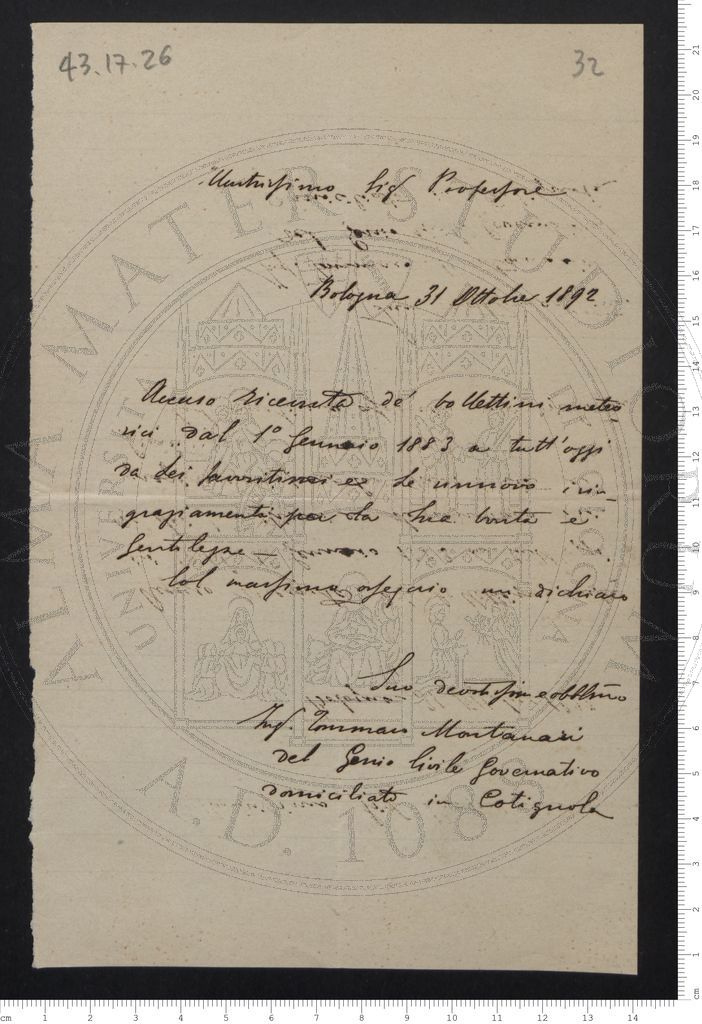 43.17.26
32
Illustrissimo Sig Professore
Bologna 31 Ottobre 1892
Accuso ricevuta de' bollettini meteo
rici dal 1° Gennaio 1883 a tutt'oggi
da Lei favoritimi e Le rinnovo i rin-
graziamenti per la Sua bontà e
Gentilezza —
Col massimo ossequio mi dichiaro
Suo devotissimo e obbl͞mo
Ing. Tommaso Montanari
del Genio Civile Governativo
domiciliato in Cotignola
ALMA MATER STUDIORUM
A.D. 1088